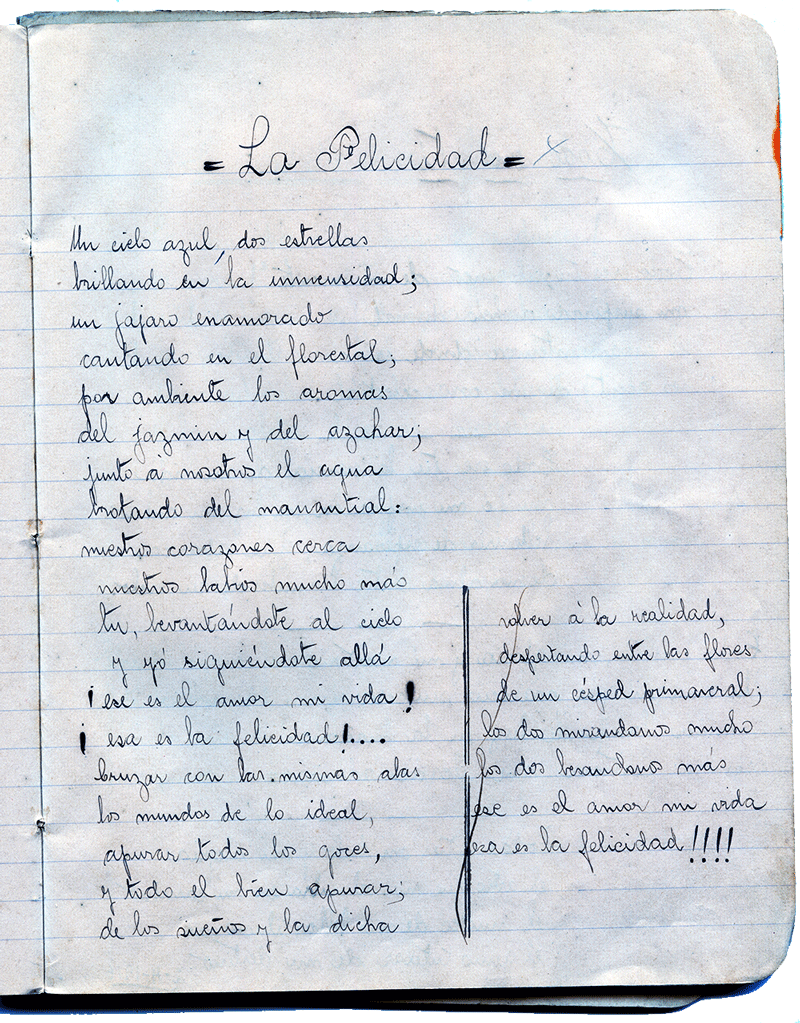 = La Felicidad =
Un cielo azul, dos estrellas
brillando en la inmensidad;
un jajaro enamorado
cantando en el florestal;
por ambiente los aromas
del jazmin y del azahar;
junto á nosotros el agua
brotando del manantial:
nuestros corazones cerca
nuestros labios mucho más
tu, levantándote al cielo
y yó siguiéndote allá
¡ese es el amor mi vida!
¡esa es la felicidad!....
Cruzar con las mismas alas
los mundos de lo ideal,
apurar todos los goces,
y todo el bien apurar;
de los sueños y la dicha
volver á la realidad,
despertando entre las flores
de un césped primaveral;
los dos mirandonos mucho
los dos besandonos más
ese es el amor mi vida
esa es la felicidad!!!!